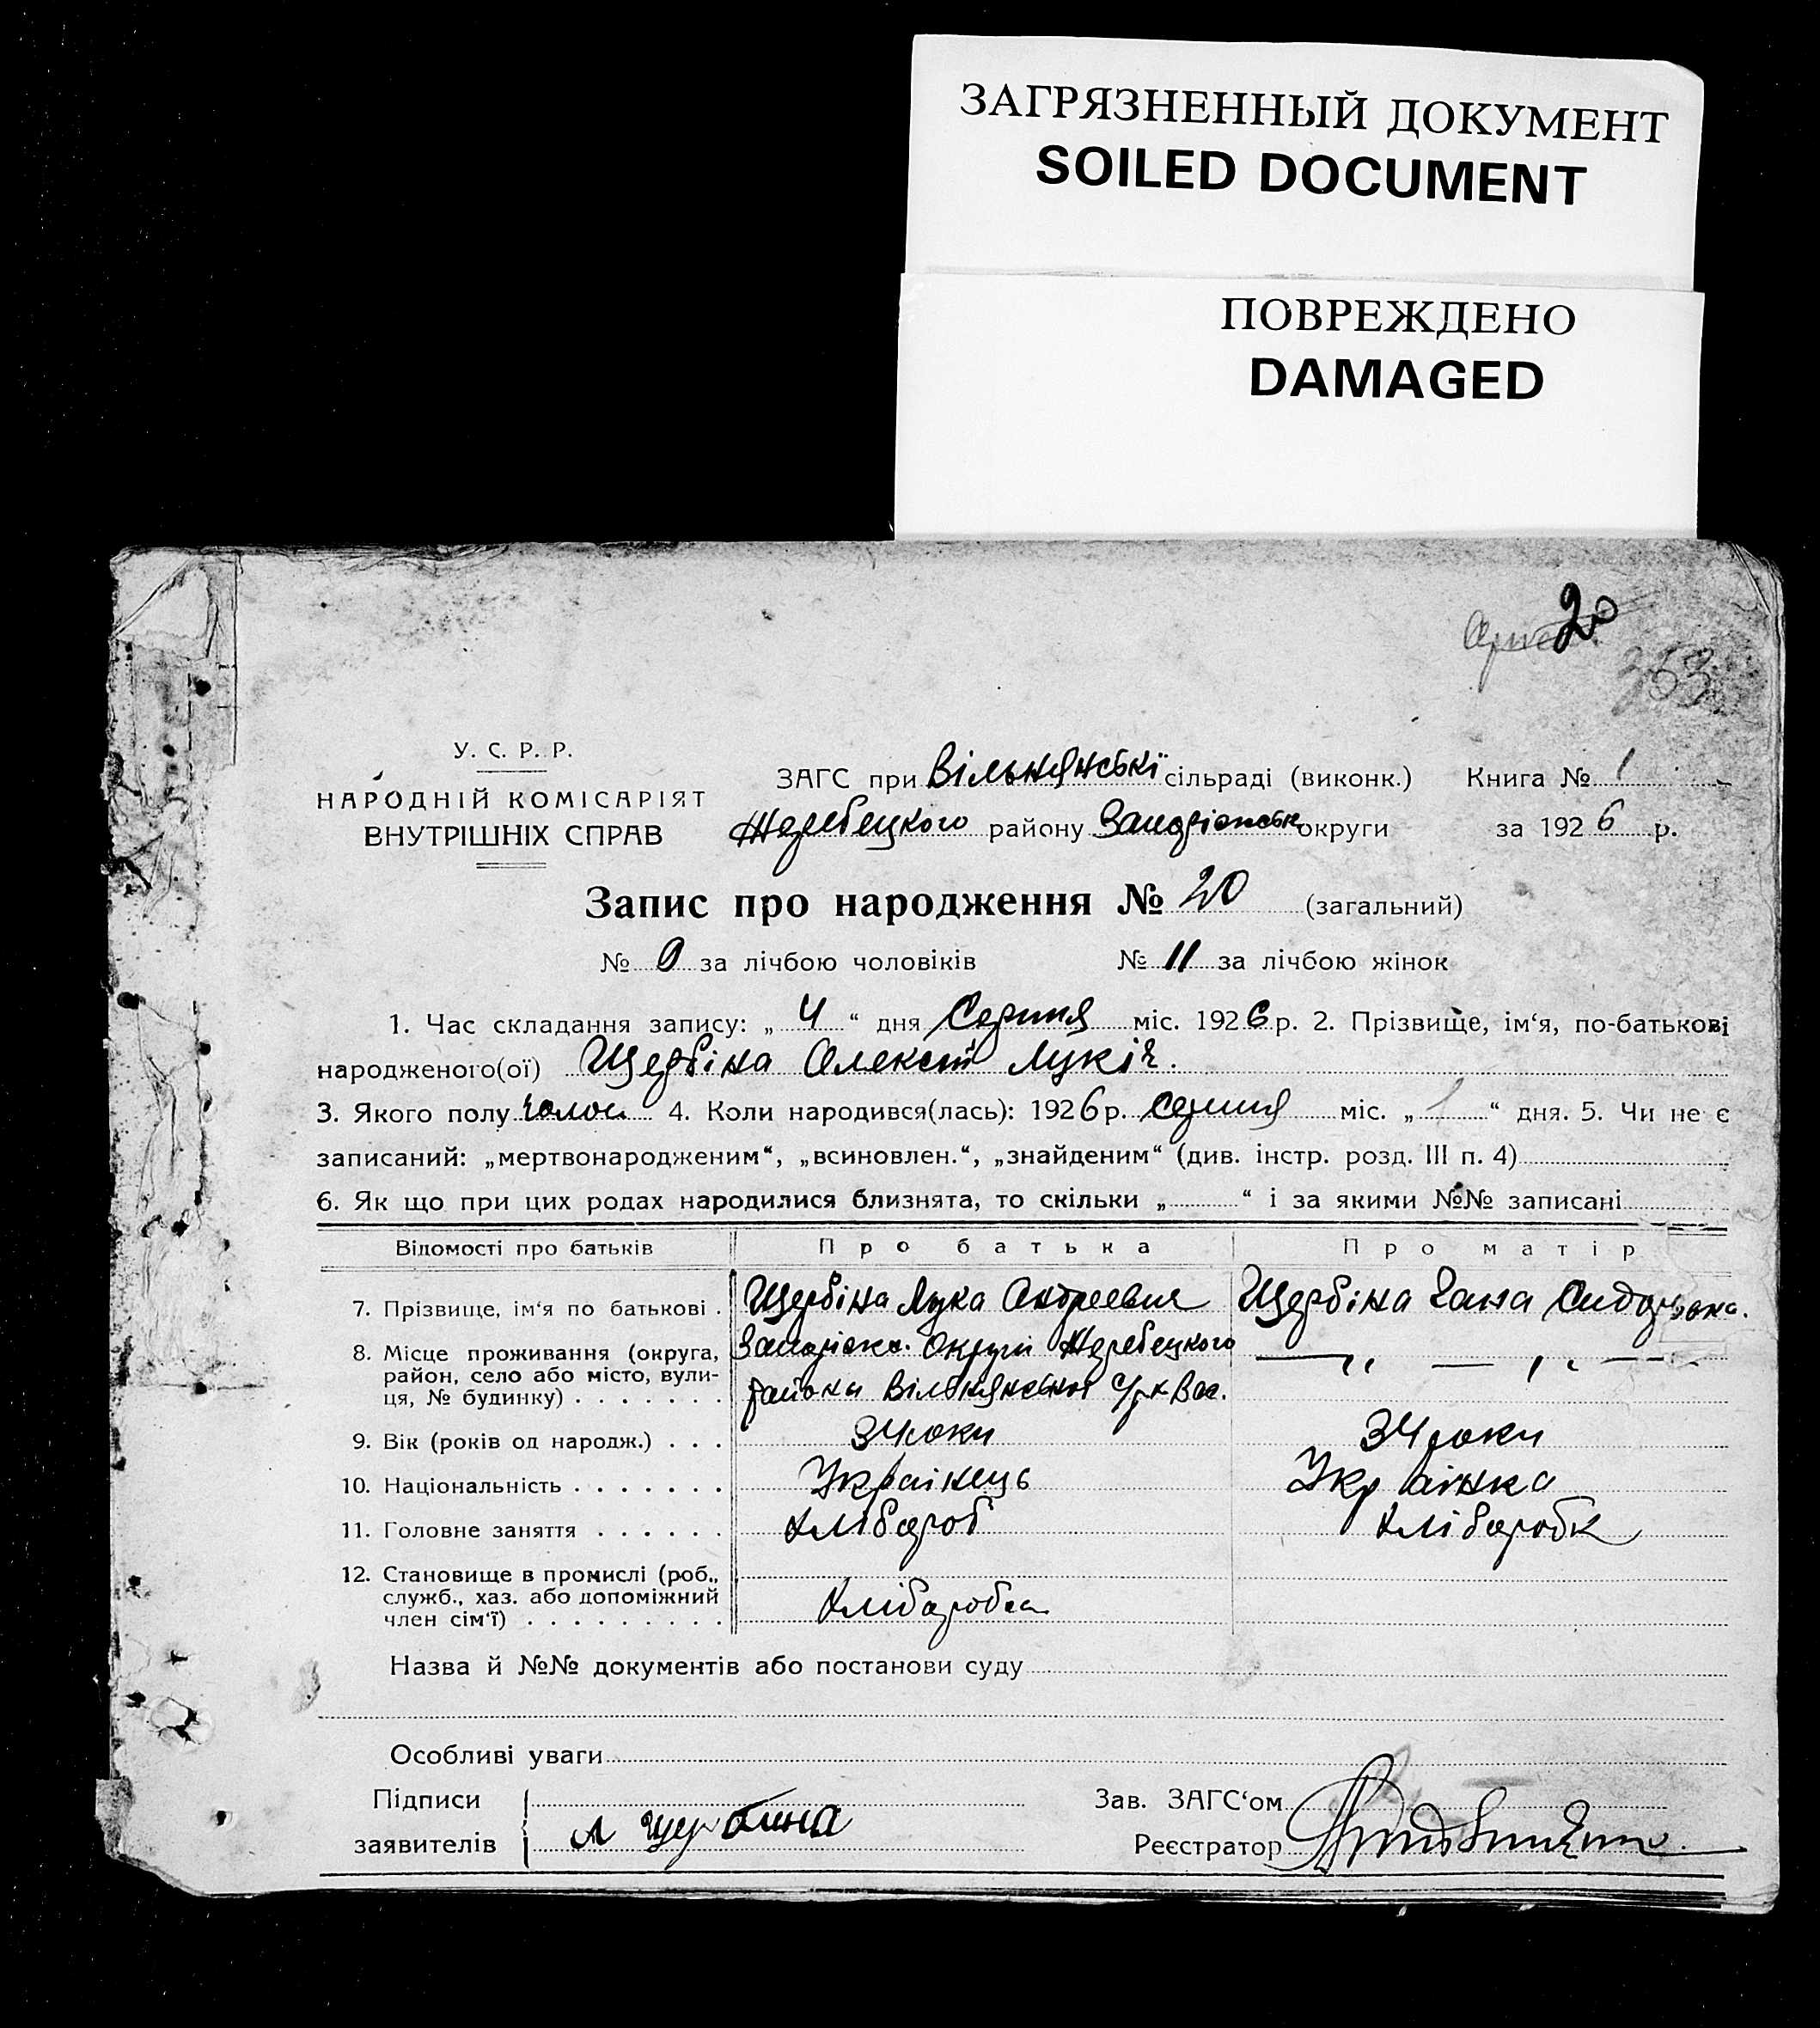 ЗАГРЯЗНЕННЫЙ ДОКУМЕНТ
SOILED DOCUMENT
ПОВРЕЖДЕНО
DAMAGED
20
353
У. С. Р. Р.
НАРОДНІЙ КОМІСАРІЯТ
ВНУТРІШНІХ СПРАВ
ЗАГС при Вільнянські сільраді (виконк.) Книга № 1
Жеребецкого району Запоріжськ округи за 1926 р.
Запис про народження № 20 (загальний)
№ 9 за лічбою чоловіків № 11 за лічбою жінок
1. Час складання запису: „ 4 “ дня Серпня міс. 1926 р. 2. Прізвище, ім‘я, по-батькові
народженого(ої) Щербіна Олексій Лукіч.
3. Якого полу чолов 4. Коли народився(лась): 1926 р. серпня міс. „ 1 “ дня. 5. Чи не є
записаний: „мертвонародженим“, „всиновлен.“, „знайденим“ (див. інстр. розд. III п. 4)
6. Як що при цих родах народилися близнята, то скільки „ “ і за якими №№ записані
Відомості про батьків Про батька Про матір
7. Прізвище, ім‘я по батькові . Щербіна Лука Андреевич Щербіна Гана Сидоровна.
8. Місце проживання (округа, район, село або місто, вулиця, № будинку) . . . . . . . Запоріжс. Округи Жеребецкого — „ — „ —
района Вільнянської с/р
9. Вік (років од народж.) . . . 34 роки 34 роки
10. Національність . . . . . . . Українець Українка
11. Головне заняття . . . . . . Хлібороб Хліборобк
12. Становище в промислі (роб., служб., хаз. або допоміжний член сім‘ї) . . . . . . . . . Хлібороб
Назва й №№ документів або постанови суду
Особливі уваги
Підписи Зав. ЗАГС‘ом
заявителів Л Щербина Реєстратор